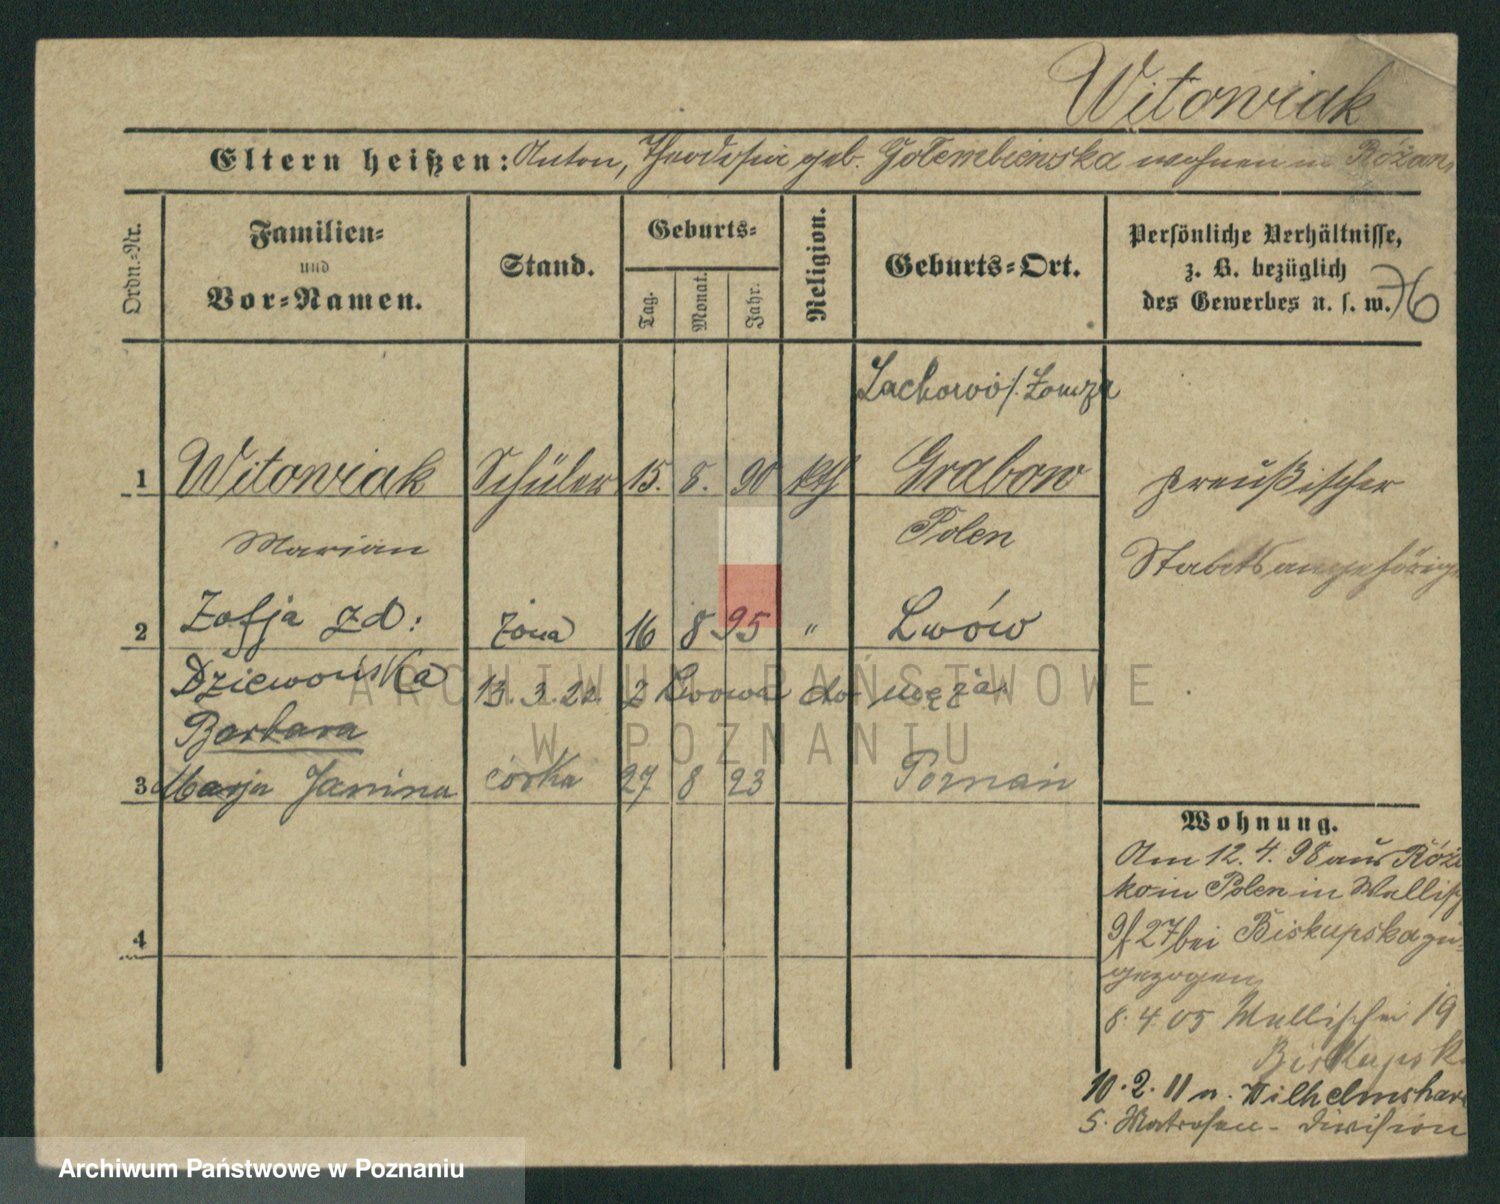 Witowiak
Eltern heißen: Anton, Theodosia geb. Golembiewska wohnen in Różan
Ordn.-Nr.
Familien-
und
Vor-Namen.
Stand.
Geburts-
Tag.
Monat.
Jahr.
Religion.
Geburts-Ort.
Persönliche Verhältnisse,
z. B. bezüglich
des Gewerbes u. s. w.
76
Lachowo /. Łomza
1 Witowiak Schüler 15. 8. 90 kth Grabow preußischer
Marian Polen Staatsangehörig
2 Zofja zd: żona 16 8 95 " Lwów
Dziewońska 13. 3. 22. z Lwowa do męża.
Barbara
3 Marja Janina córka 27 8 23 Poznań
4
Wohnung.
Am 12. 4. 98 aus Róż
ko in Polen in Wallisch
9/27 bei Biskupska zu-
gezogen
8. 4. 05 Wallischei 19
Biskupsk
10. 2. 11 n. Wilhelmshav
5. Matrosen-Division
ARCHIWUM PAŃSTWOWE
W POZNANIU
Archiwum Państwowe w Poznaniu